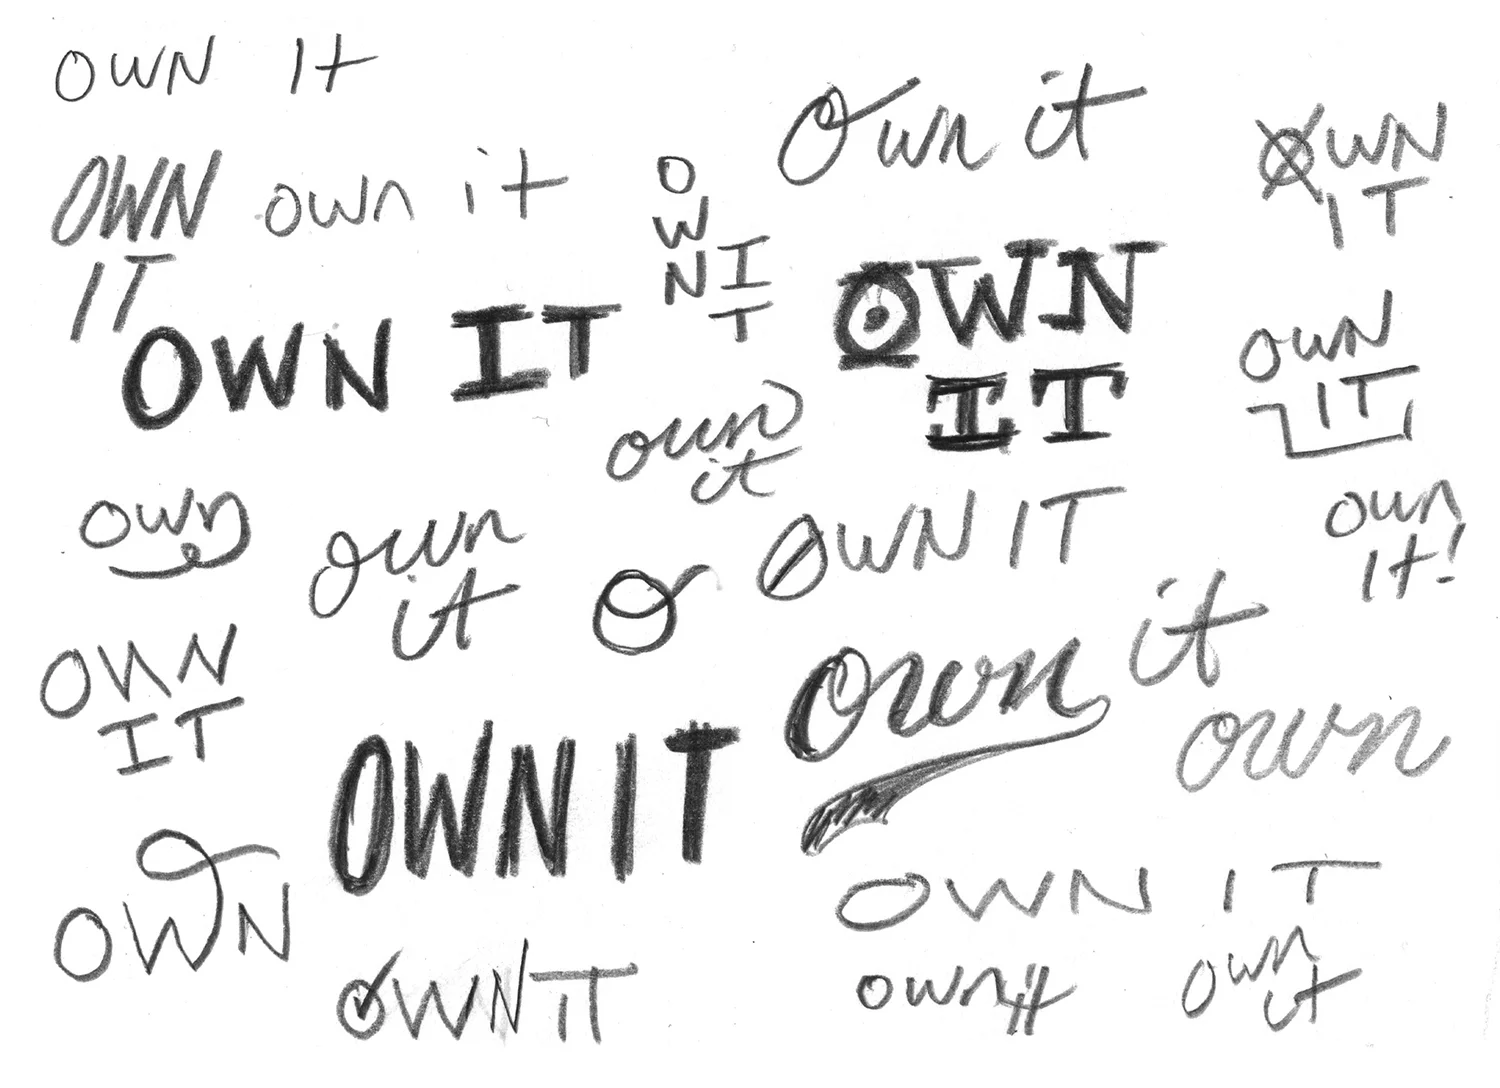 OWN It
OWN
IT
own it
O
W
N
I
T
Own it
OWN
IT
OWN IT
OWN
IT
OWN
IT
own
it
own
own
it
O
OWN IT
own
it!
OWN
IT
OWN IT
Own
it
own
OWN
OWN IT
OWN IT
OWN IT
own it
own
it